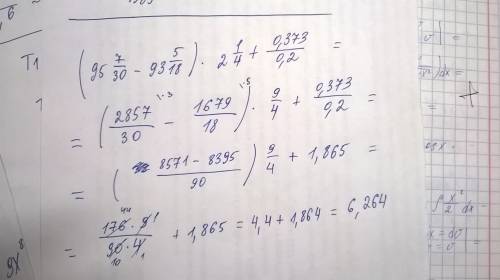 T1
(95 7/30 − 93 5/18) · 2 1/4 + 0,373/0,2 =
= (2857/30 − 1679/18) · 9/4 + 0,373/0,2 =
= (8571 − 8395/90) 9/4 + 1,865 =
= 176 · 9/90 · 4 + 1,865 = 4,4 + 1,864 = 6,264